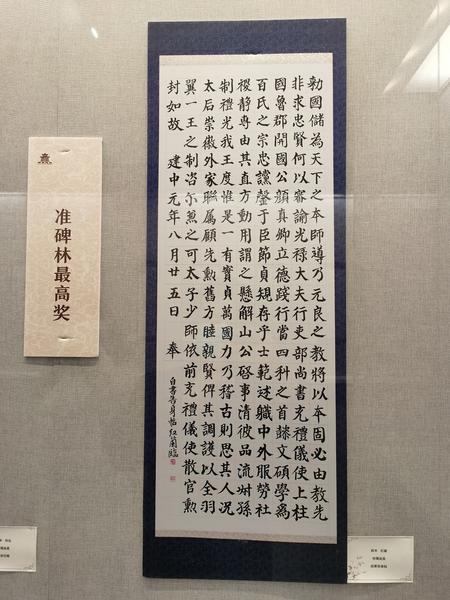 准碑林最高奖
勑國儲為天下之本師導乃元良之教將以本固必由教先
非求忠賢何以審諭光禄大夫行吏部尚書充禮儀使上柱
國魯郡開國公顏真卿立德踐行當四科之首懿文碩學為
百氏之宗忠讜罄于臣節貞規存乎士範述職中外服勞社
稷静専由其直方動用謂之懸解山公啓事清彼品流叔孫
制禮光我王度惟是一有實貞萬國力乃稽古則思其人况
太后崇徽外家聯属顧先勲舊方睦親賢俾其調護以全羽
翼一王之制咨尔兼之可太子少師依前充禮儀使散官勲
封如故 建中元年八月廿五日 奉
自書告身帖 红蘭臨